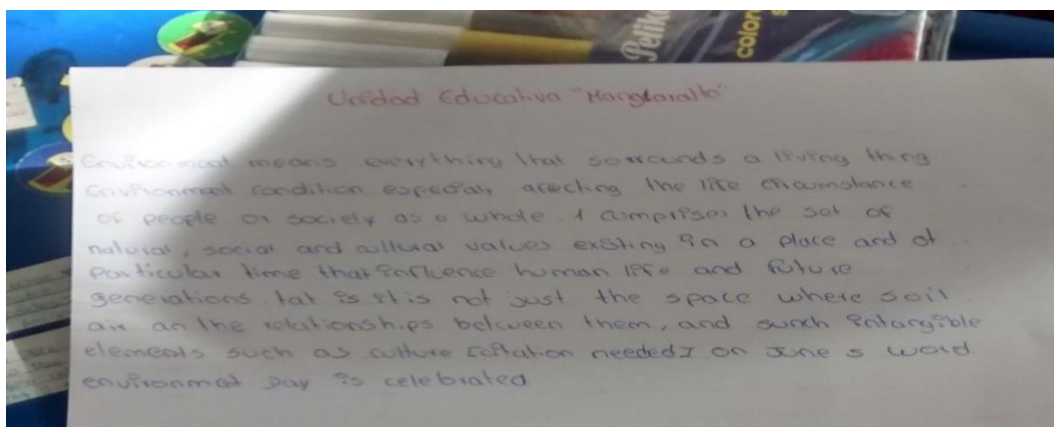 Pelik
color
Unidad Educativa "Manglaralto"
Environment means everything that sorrounds a living thing
Environment condition especialy afecting the life circumstance
of people or society as a whole. I comprises the set of
natural, social and cultural values existing in a place and at
Particular time that influence human life and future
generations. tat is it is not just the space where soil
air an the relationships between them, and sunch intangible
elements such as culture [citation needed] on June 5 word
environmat Day is celebrated